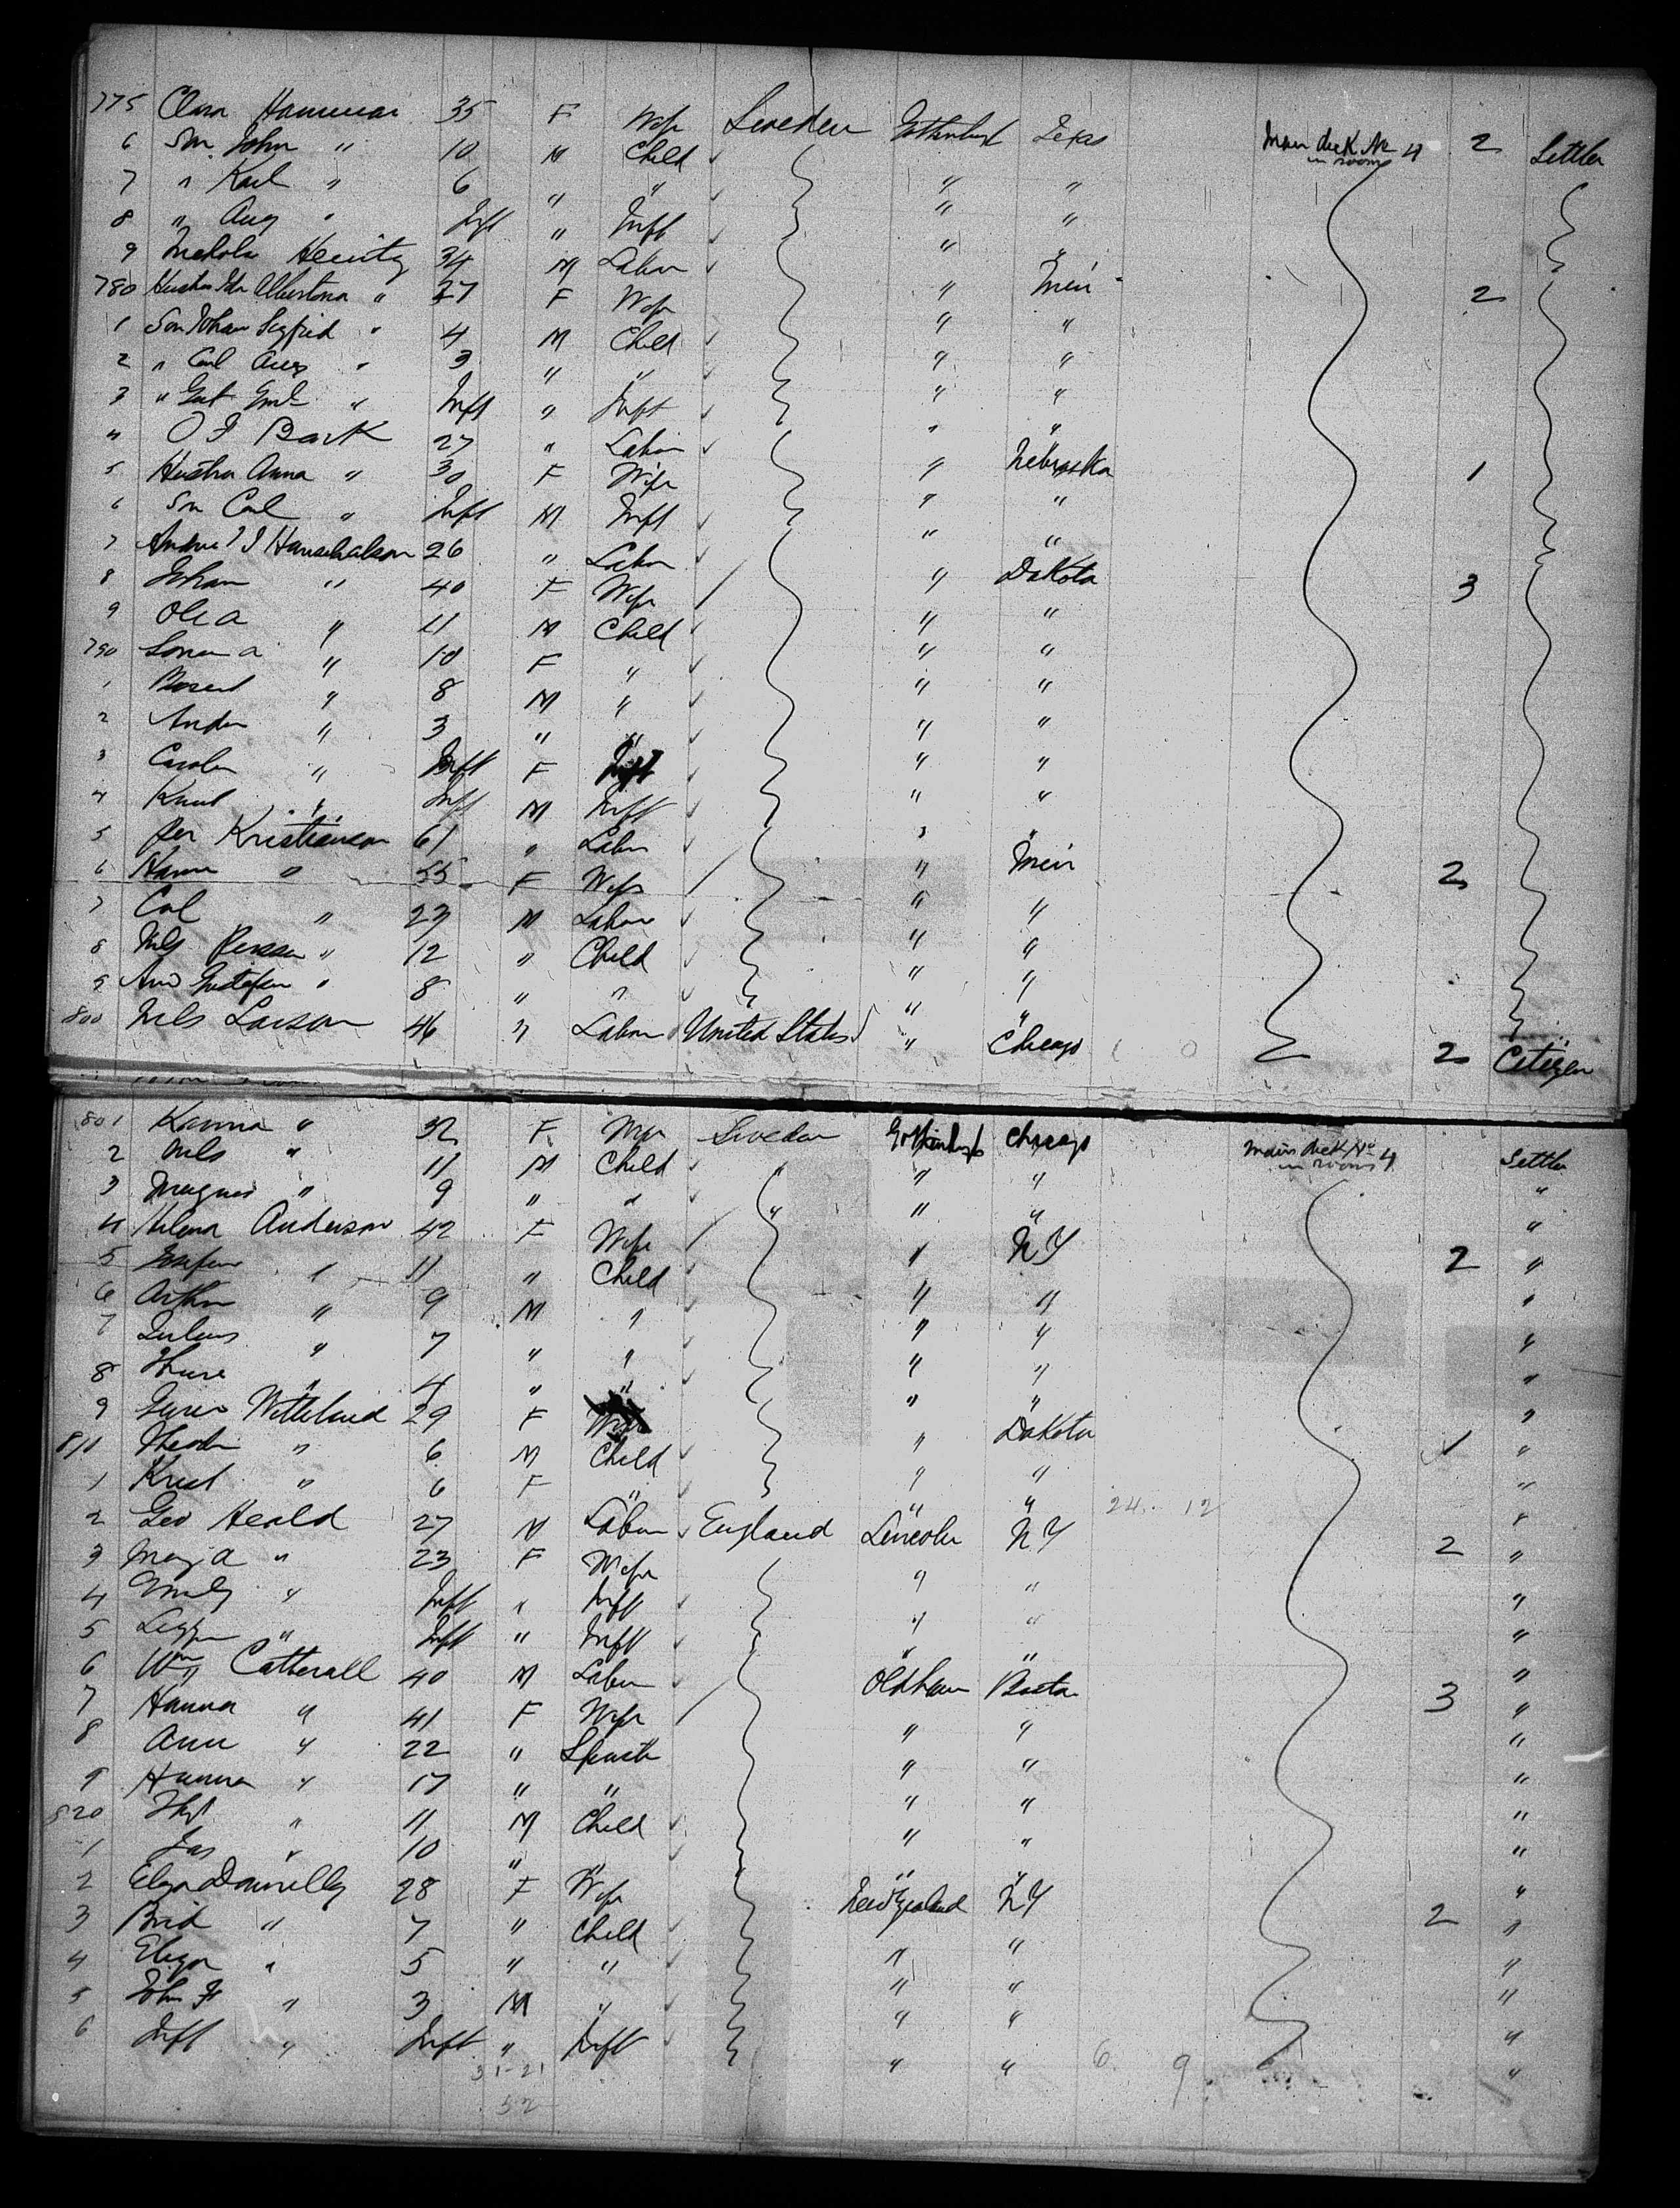 775 Clara Hammar 35 F Wife Sweden Gothenburg Texas Main deck No 4 in rooms 2 Settler
6 Son John " 10 M Child " "
7 " Karl " 6 " " " "
8 " Aug " Inft " Inft " "
9 Henitz 34 M Labor " Min 2
780 Hustru Ida Albertina " 27 F Wife " "
1 Son Johan Sigfrid " 4 M Child " "
2 " Carl Aug " 3 " " " "
3 " Gust Emil " Inft " Inft " "
4 O F Bark 27 " Labor " Nebraska 1
5 Hustru Anna " 30 F Wife " "
6 Son Carl " Inft M Inft " "
7 26 " Labor " Dakota 3
8 Johan " 40 F Wife " "
9 Ole a " 11 M Child " "
790 " 10 F " " "
1 " 8 M " " "
2 Ander " 3 " " " "
3 Carolin " Inft F Inft " "
4 Knut " Inft M Inft " "
5 Per Kristianson 61 " Labor " Min 2
6 Hanna " 55 F Wife " "
7 Carl " 23 M Labor " "
8 Nils Persson " 12 " Child " "
9 Gustafson " 8 " " " "
800 Nils Larson 46 " Labor United States " Chicago 2 Citizen
801 Hanna " 32 F Wife Sweden Gothenburg Chicago Main deck No 4 in rooms Settler
2 Nils " 11 M Child " " "
3 Magnus " 9 " " " " " "
4 Helena Anderson 42 F Wife " N Y 2 "
5 Josefin " 11 " Child " " "
6 Arthur " 9 M " " " "
7 Julius " 7 " " " " "
8 Thure " 4 " " " " "
9 Witteland 29 F Wife " Dakota 1 "
810 " 6 M Child " " "
1 Krist " 6 F " " " 24 12 "
2 Geo Heald 27 M Labor England Lincoln N Y 2 "
3 Mary a " 23 F Wife " " "
4 Emily " Inft " Inft " " "
5 " Inft " Inft " " "
6 Wm Catterall 40 M Labor Oldham Boston 3 "
7 Hanna " 41 F Wife " " "
8 Ann " 22 " Spinster " " "
9 Hanna " 17 " " " " "
820 " 11 M Child " " "
1 Jas " 10 " " " " "
2 Eliza Donnelly 28 F Wife New Zealand N Y 2 "
3 Brid " 7 " Child " " "
4 Eliza " 5 " " " " "
5 John " 3 M " " " "
6 Inft " Inft " Inft " " 6 9 "
31-21
52